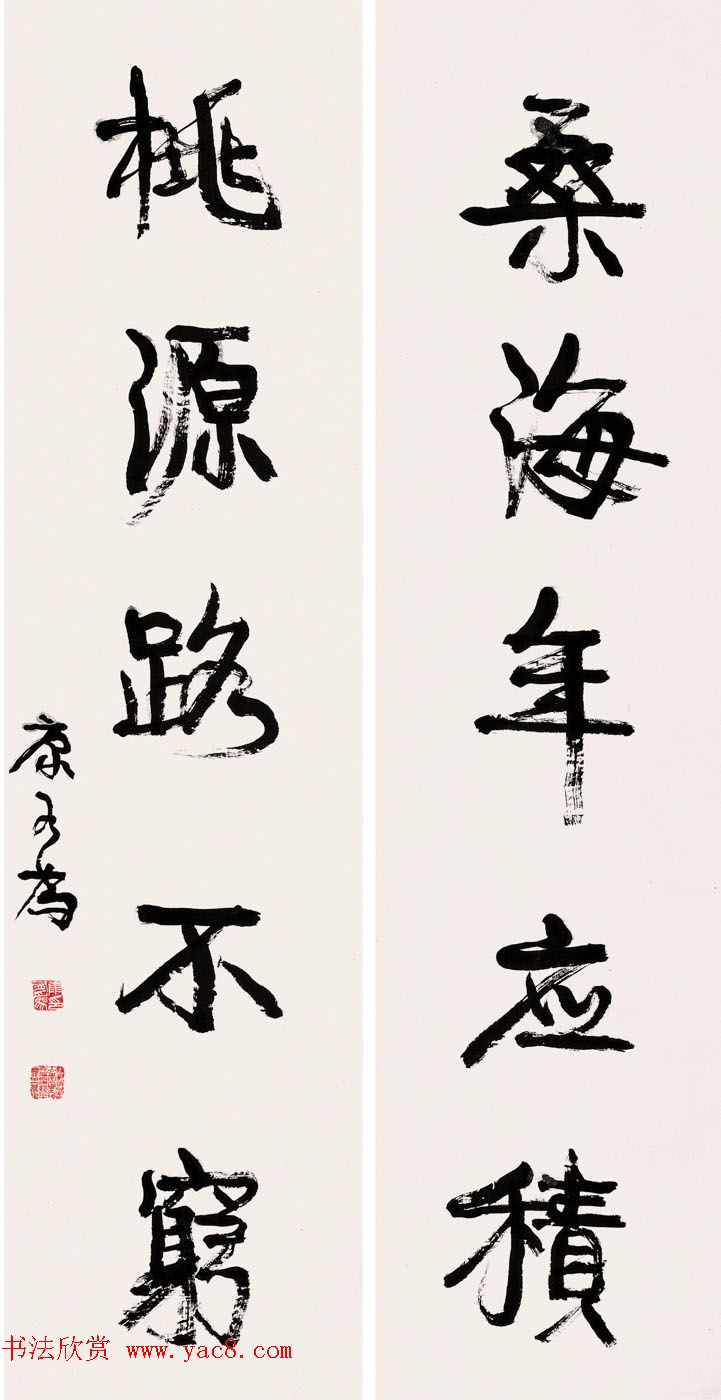 桑海年应積
桃源路不窮
康有為
书法欣赏 www.yac8.com